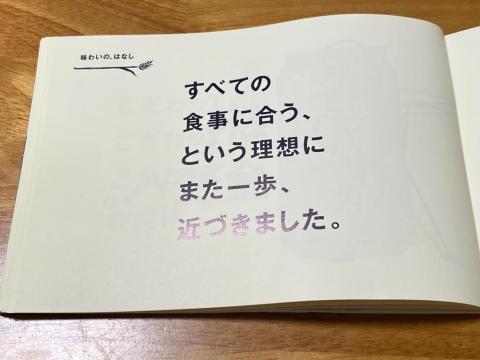 味わいの、はなし
すべての
食事に合う、
という理想に
また一歩、
近づきました。